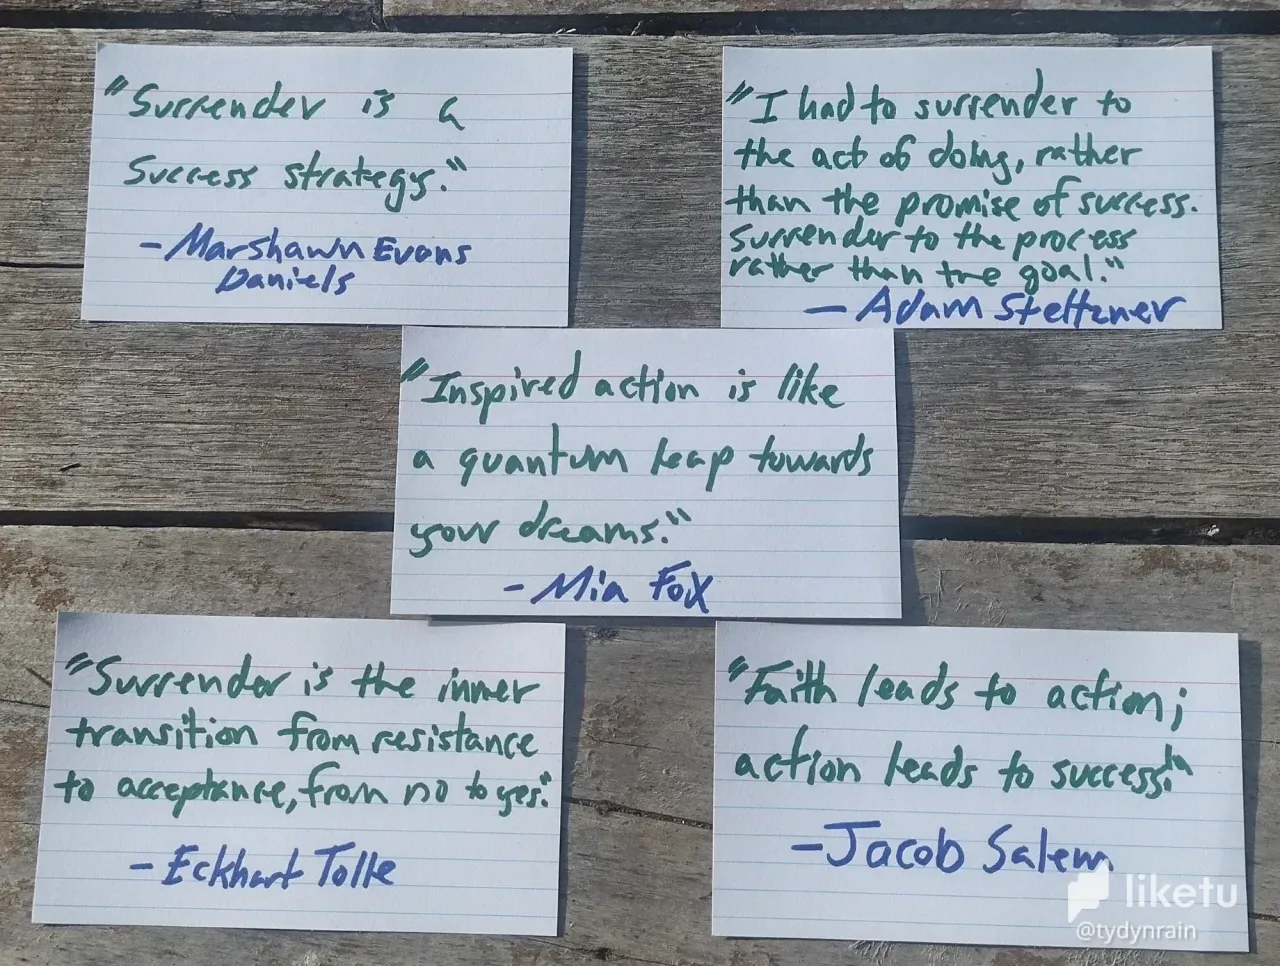 "Surrender is a
success strategy."
- Marshawn Evans
Daniels
"I had to surrender to
the act of doing, rather
than the promise of success.
Surrender to the process
rather than the goal."
- Adam Steltzner
"Inspired action is like
a quantum leap towards
your dreams."
- Mia Fox
"Surrender is the inner
transition from resistance
to acceptance, from no to yes."
- Eckhart Tolle
"Faith leads to action;
action leads to success."
- Jacob Salem
liketu
@tydynrain